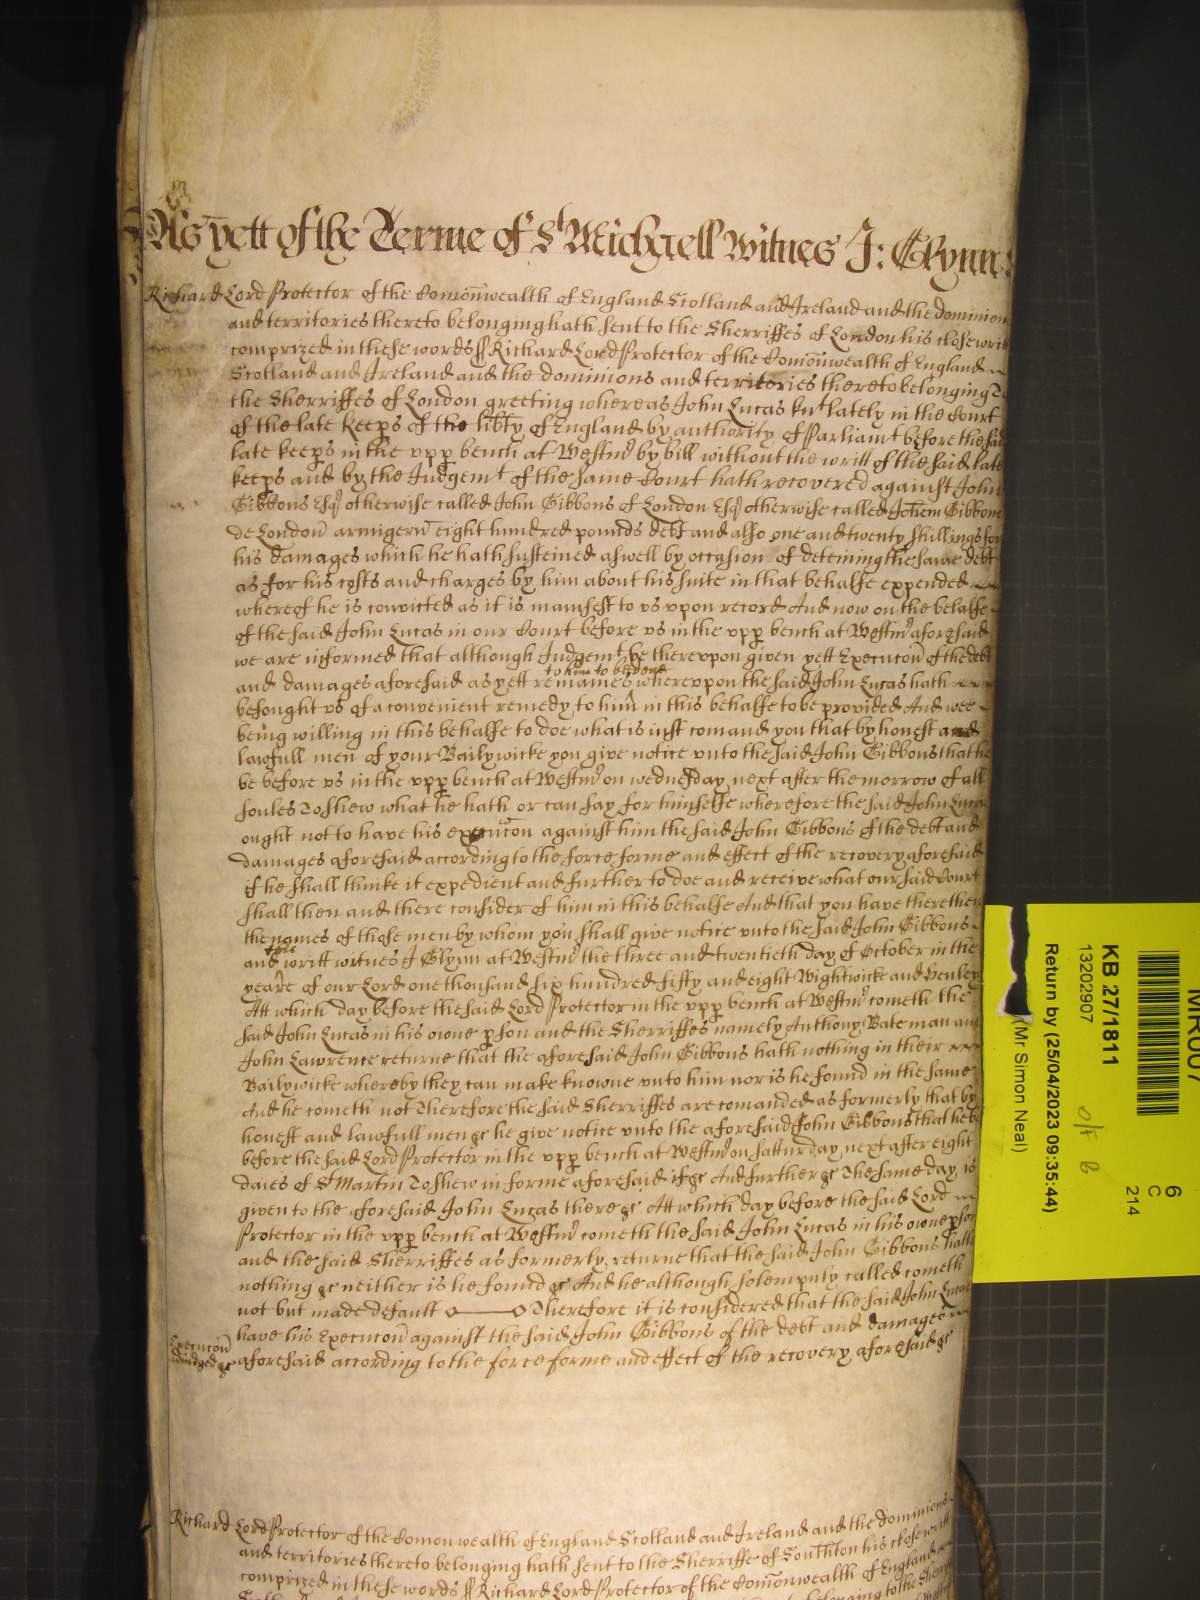 As yett of the Terme of St Michaell Witnes J: Glynn
Richard Lord Protector of the Comonwealth of England Scotland and Ireland and the dominions
and territories thereto belonging hath sent to the Sherriffes of London his close writt
comprized in these words ss Richard Lord Protector of the Comonwealth of England
Scotland and Ireland and the dominions and territories thereto belonging To
the Sherriffes of London greeting whereas John Lucas knt lately in the Court
of the late keeps of the libty of England by authority of Parliamt before the said
late keeps in the upp bench at Westmr by bill without the writt of the said late
keeps and by the Judgemt of the same Court hath recovered against John
Gibbons Esq otherwise called John Gibbons of London Esq otherwise called Johem Gibbons
de London armigeru eight hundred pounds debt and also one and twenty shillings for
his damages which he hath susteined aswell by occasion of deteining the same debt
as for his costs and charges by him about his suite in that behalfe expended
whereof he is convicted as it is manifest to us upon record And now on the behalfe
of the said John Lucas in our Court before us in the upp bench at Westmr aforesaid
we are informed that although Judgemt be thereupon given yett Execucon of the debt
to him to be done
and damages aforesaid as yett remaines whereupon the said John Lucas hath
besought us of a convenient remedy to him in this behalfe to be provided And wee
being willing in this behalfe to doe what is iust comand you that by honest and
lawfull men of your Bailywicke you give notice unto the said John Gibbons that he
be before us in the upp bench at Westmr on wednesday next after the morrow of all
soules To shew what he hath or can say for himselfe wherefore the said John Lucas
ought not to have his execucon against him the said John Gibbons of the debt and
damages aforesaid according to the force forme and effect of the recovery aforesaid
if he shall thinke it expedient and further to doe and receive what our said Court
shall then and there consider of him in this behalfe And that you have there then
the names of those men by whom you shall give notice unto the said John Gibbons
and this writt witnes J Glynn at Westmr the three and twentieth day of October in the
yeare of our Lord one thousand six hundred fifty and eight Wightwicke and Henley
Att which day before the said Lord Protector in the upp bench at Westmr cometh the
said John Lucas in his owne pson and the Sherriffes namely Anthony Bateman and
John Lawrence returne that the aforesaid John Gibbons hath nothing in their
Bailywicke whereby they can make knowne unto him nor is he found in the same
And he cometh not Therefore the said Sherriffes are comanded as formerly that by
honest and lawfull men &c he give notice unto the aforesaid John Gibbons that he be
before the said Lord Protector in the upp bench at Westmr on Satturday next after eight
daies of St Martin To shew in forme aforesaid if &c And further &c The same day is
given to the aforesaid John Lucas there &c Att which day before the said Lord
Protector in the upp bench at Westmr cometh the said John Lucas in his owne pson
and the said Sherriffes as formerly returne that the said John Gibbons hath
nothing &c neither is he found &c And he although solempnly called cometh
not but made default Therefore it is considered that the said John Lucas
have his Execucon against the said John Gibbons of the debt and damages
Execucon
adiudged &c
aforesaid according to the force forme and effect of the recovery aforesaid &c
Richard Lord Protector of the Comonwealth of England Scotland and Ireland and the dominions
and territories thereto belonging hath sent to the Sherriffe of Southton his close writt
comprized in these words ss Richard Lord Protector of the Comonwealth of England
KB 27/1811
13202907
Return by (25/04/2023 09:35:44)
(Mr Simon Neal)
6
C
214